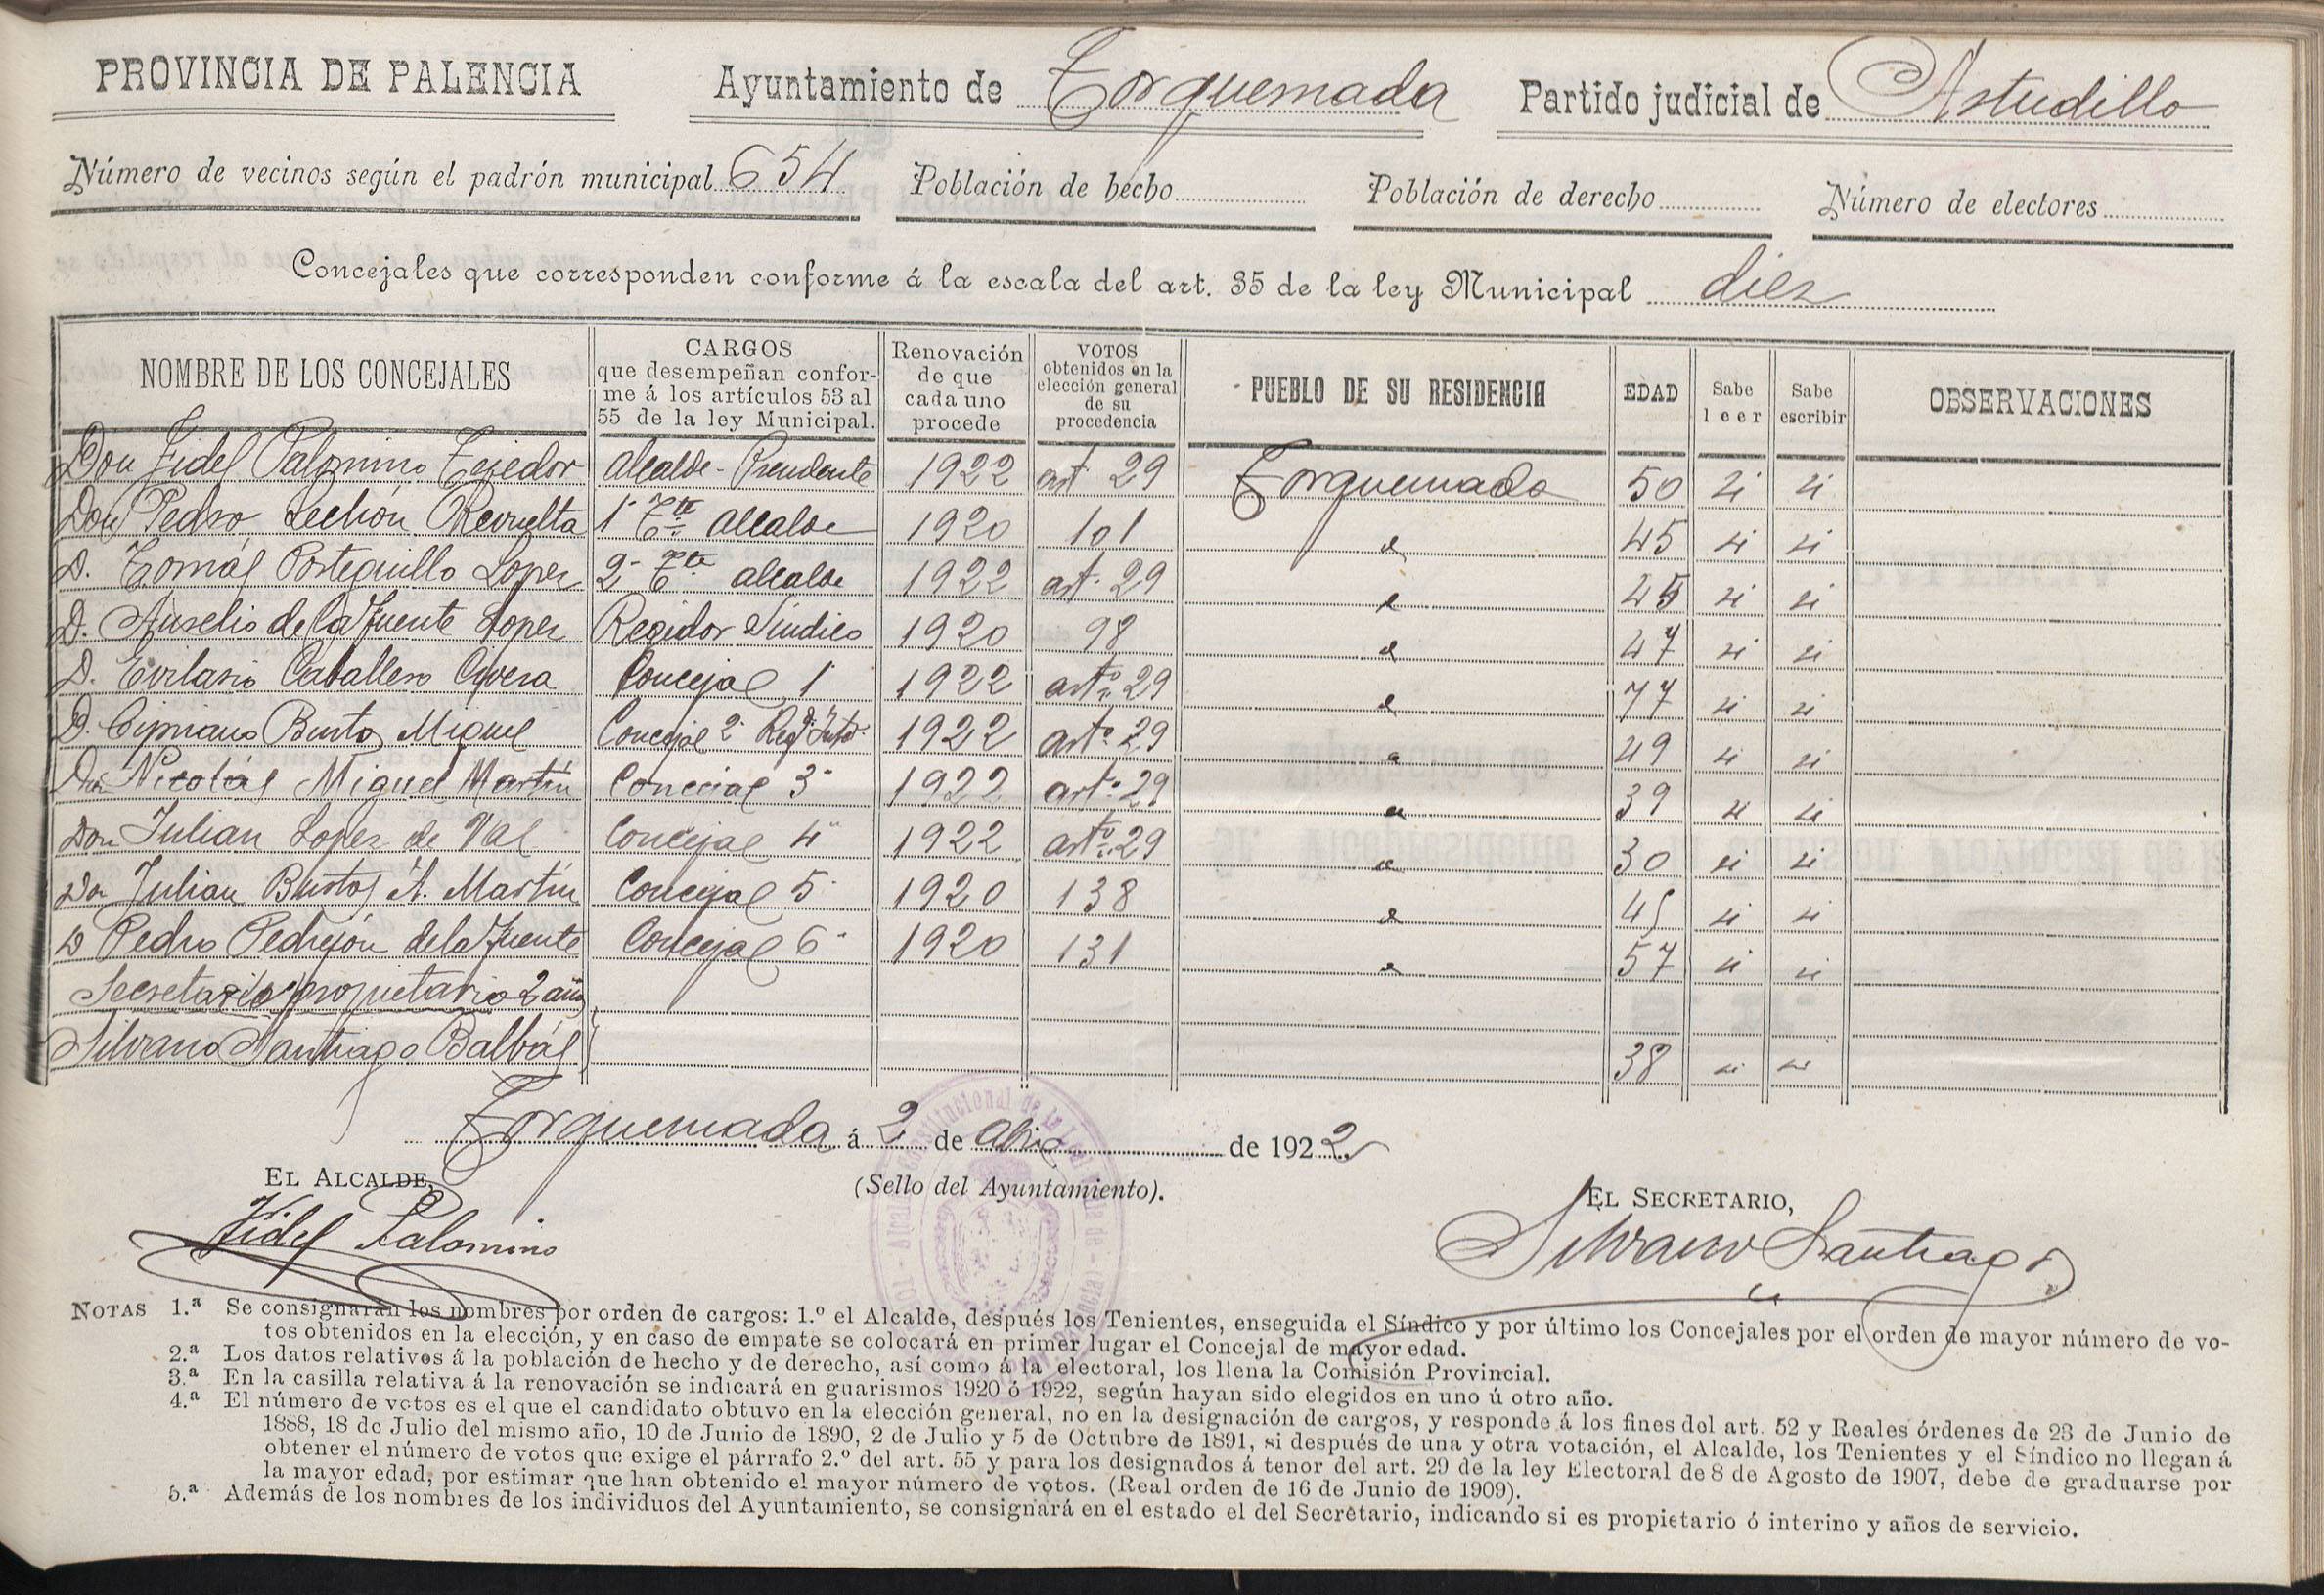 PROVINCIA DE PALENCIA Ayuntamiento de Torquemada Partido judicial de Astudillo
Número de vecinos según el padrón municipal 654 Población de hecho Población de derecho Número de electores
Concejales que corresponden conforme á la escala del art. 35 de la ley Municipal diez
NOMBRE DE LOS CONCEJALES CARGOS que desempeñan confor-me á los artículos 53 al 55 de la ley Municipal. Renovación de que cada uno procede VOTOS obtenidos en la elección general de su procedencia PUEBLO DE SU RESIDENCIA EDAD Sabe leer Sabe escribir OBSERVACIONES
Don Fidel Palomino Tejedor Alcalde-Presidente 1922 art 29 Torquemada 50 si si
Don Pedro Lechón Revuelta 1º Tte alcalde 1920 101 45 si si
D. Tomás Porteguillo Lopez 2º Tte alcalde 1922 art. 29 45 si si
D. Aurelio de la Fuente Lopez Regidor Sindico 1920 98 47 si si
D. Evilasio Caballero Civera Concejal 1º 1922 artº 29 77 si si
D. Cipriano Bustos Miguel Concejal 2º 1922 artº 29 49 si si
Don Nicolás Miguel Martín Concejal 3º 1922 artº 29 39 si si
Don Julian Lopez de Val Concejal 4º 1922 artº 29 30 si si
Don Julian Bustos A. Martín Concejal 5º 1920 138 45 si si
D Pedro Pedrejón de la Fuente Concejal 6º 1920 131 57 si si
Secretario propietario 2 años
Silvano Santiago Balbás 38 si si
Torquemada á 2 de Abril de 1922
EL ALCALDE, (Sello del Ayuntamiento). EL SECRETARIO,
Fidel Palomino Silvano Santiago
NOTAS 1.ª Se consignarán los nombres por orden de cargos: 1.º el Alcalde, después los Tenientes, enseguida el Síndico y por último los Concejales por el orden de mayor número de vo-
tos obtenidos en la elección, y en caso de empate se colocará en primer lugar el Concejal de mayor edad.
2.ª Los datos relativos á la población de hecho y de derecho, así como á la electoral, los llena la Comisión Provincial.
3.ª En la casilla relativa á la renovación se indicará en guarismos 1920 ó 1922, según hayan sido elegidos en uno ú otro año.
4.ª El número de votos es el que el candidato obtuvo en la elección general, no en la designación de cargos, y responde á los fines del art. 52 y Reales órdenes de 23 de Junio de
1888, 18 de Julio del mismo año, 10 de Junio de 1890, 2 de Julio y 5 de Octubre de 1891, si después de una y otra votación, el Alcalde, los Tenientes y el Síndico no llegan á
obtener el número de votos que exige el párrafo 2.º del art. 55 y para los designados á tenor del art. 29 de la ley Electoral de 8 de Agosto de 1907, debe de graduarse por
la mayor edad, por estimar que han obtenido el mayor número de votos. (Real orden de 16 de Junio de 1909).
5.ª Además de los nombres de los individuos del Ayuntamiento, se consignará en el estado el del Secretario, indicando si es propietario ó interino y años de servicio.